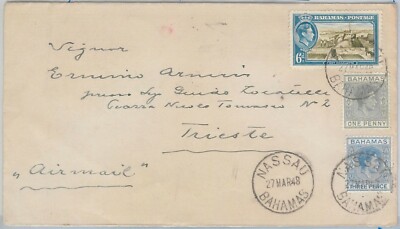 BAHAMAS · POSTAGE
6D
Signor
Erminio
presso Sig. Guido
Piazza Nicolò Tommaseo N° 2
Trieste
"Airmail"
NASSAU
27 MAR 48
BAHAMAS
ONE PENNY
BAHAMAS
THREE PENCE
BAHAMAS
NASSAU
BAHAMAS